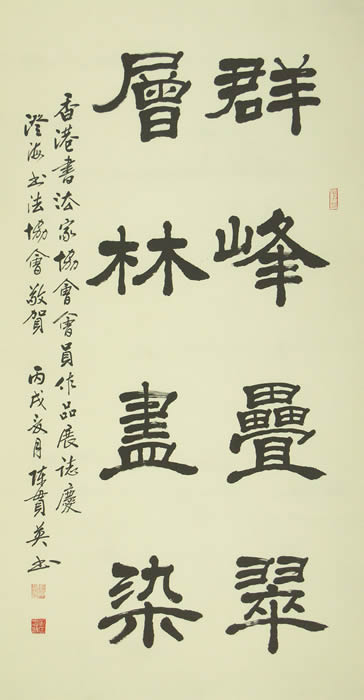 群峰疊翠
層林盡染
香港書法家協會會員作品展誌慶
澄海书法協會敬賀 丙戌夏月陈貫英书